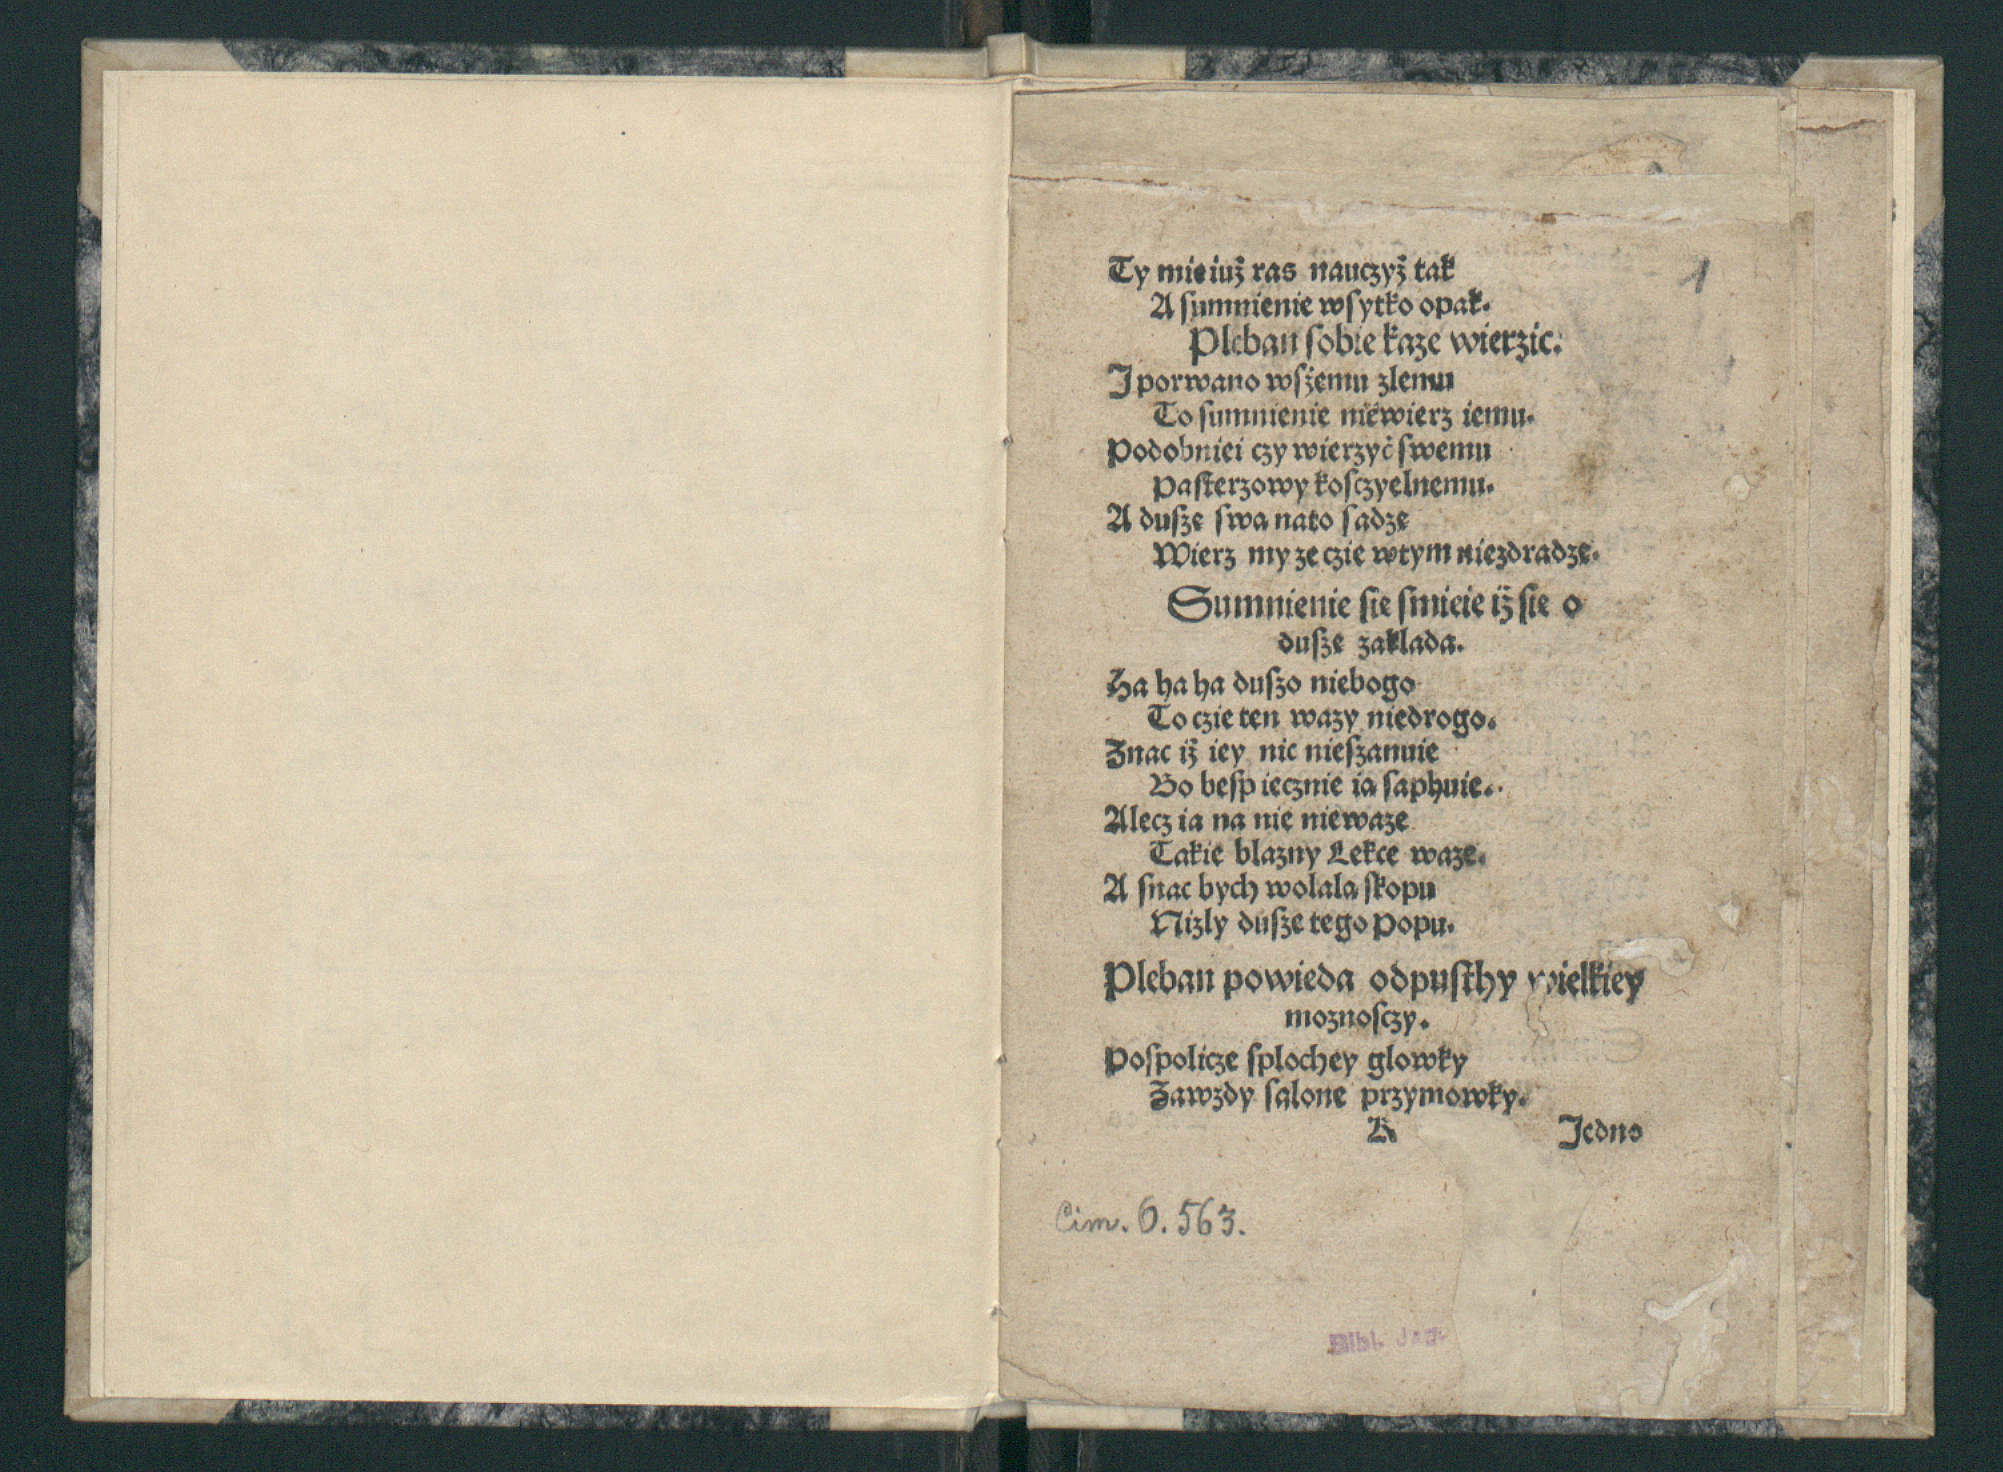 Ty mie iuż ras nauczyż tak
1
A sumnienie wsytko opak.
Pleban sobie kaze wierzic.
J porwano wsżemu zlemu
To sumnienie niewierz iemu.
Podobniei czy wierzyć swemu
Pasterzowy kosczyelnemu.
A dusze swa nato sadze
Wierz my ze czie wtym niezdradze.
Sumnienie sie smieie iż sie o
dusze zaklada.
Ha ha ha duszo niebogo
To czie ten wazy niedrogo.
Znac iż iey nic nieszanuie
Bo bespiecznie ia saphuie.
Alecz ia na nie niewaze
Takie blazny Lekce waze.
A snac bych wolala skopu
Nizly dusze tego popu.
Pleban powieda odpusthy wielkiey
moznosczy.
Pospolicze splochey glowky
Zawzdy salone przymowky.
A Jedno
Cim. O. 563.
Bibl. Jag.